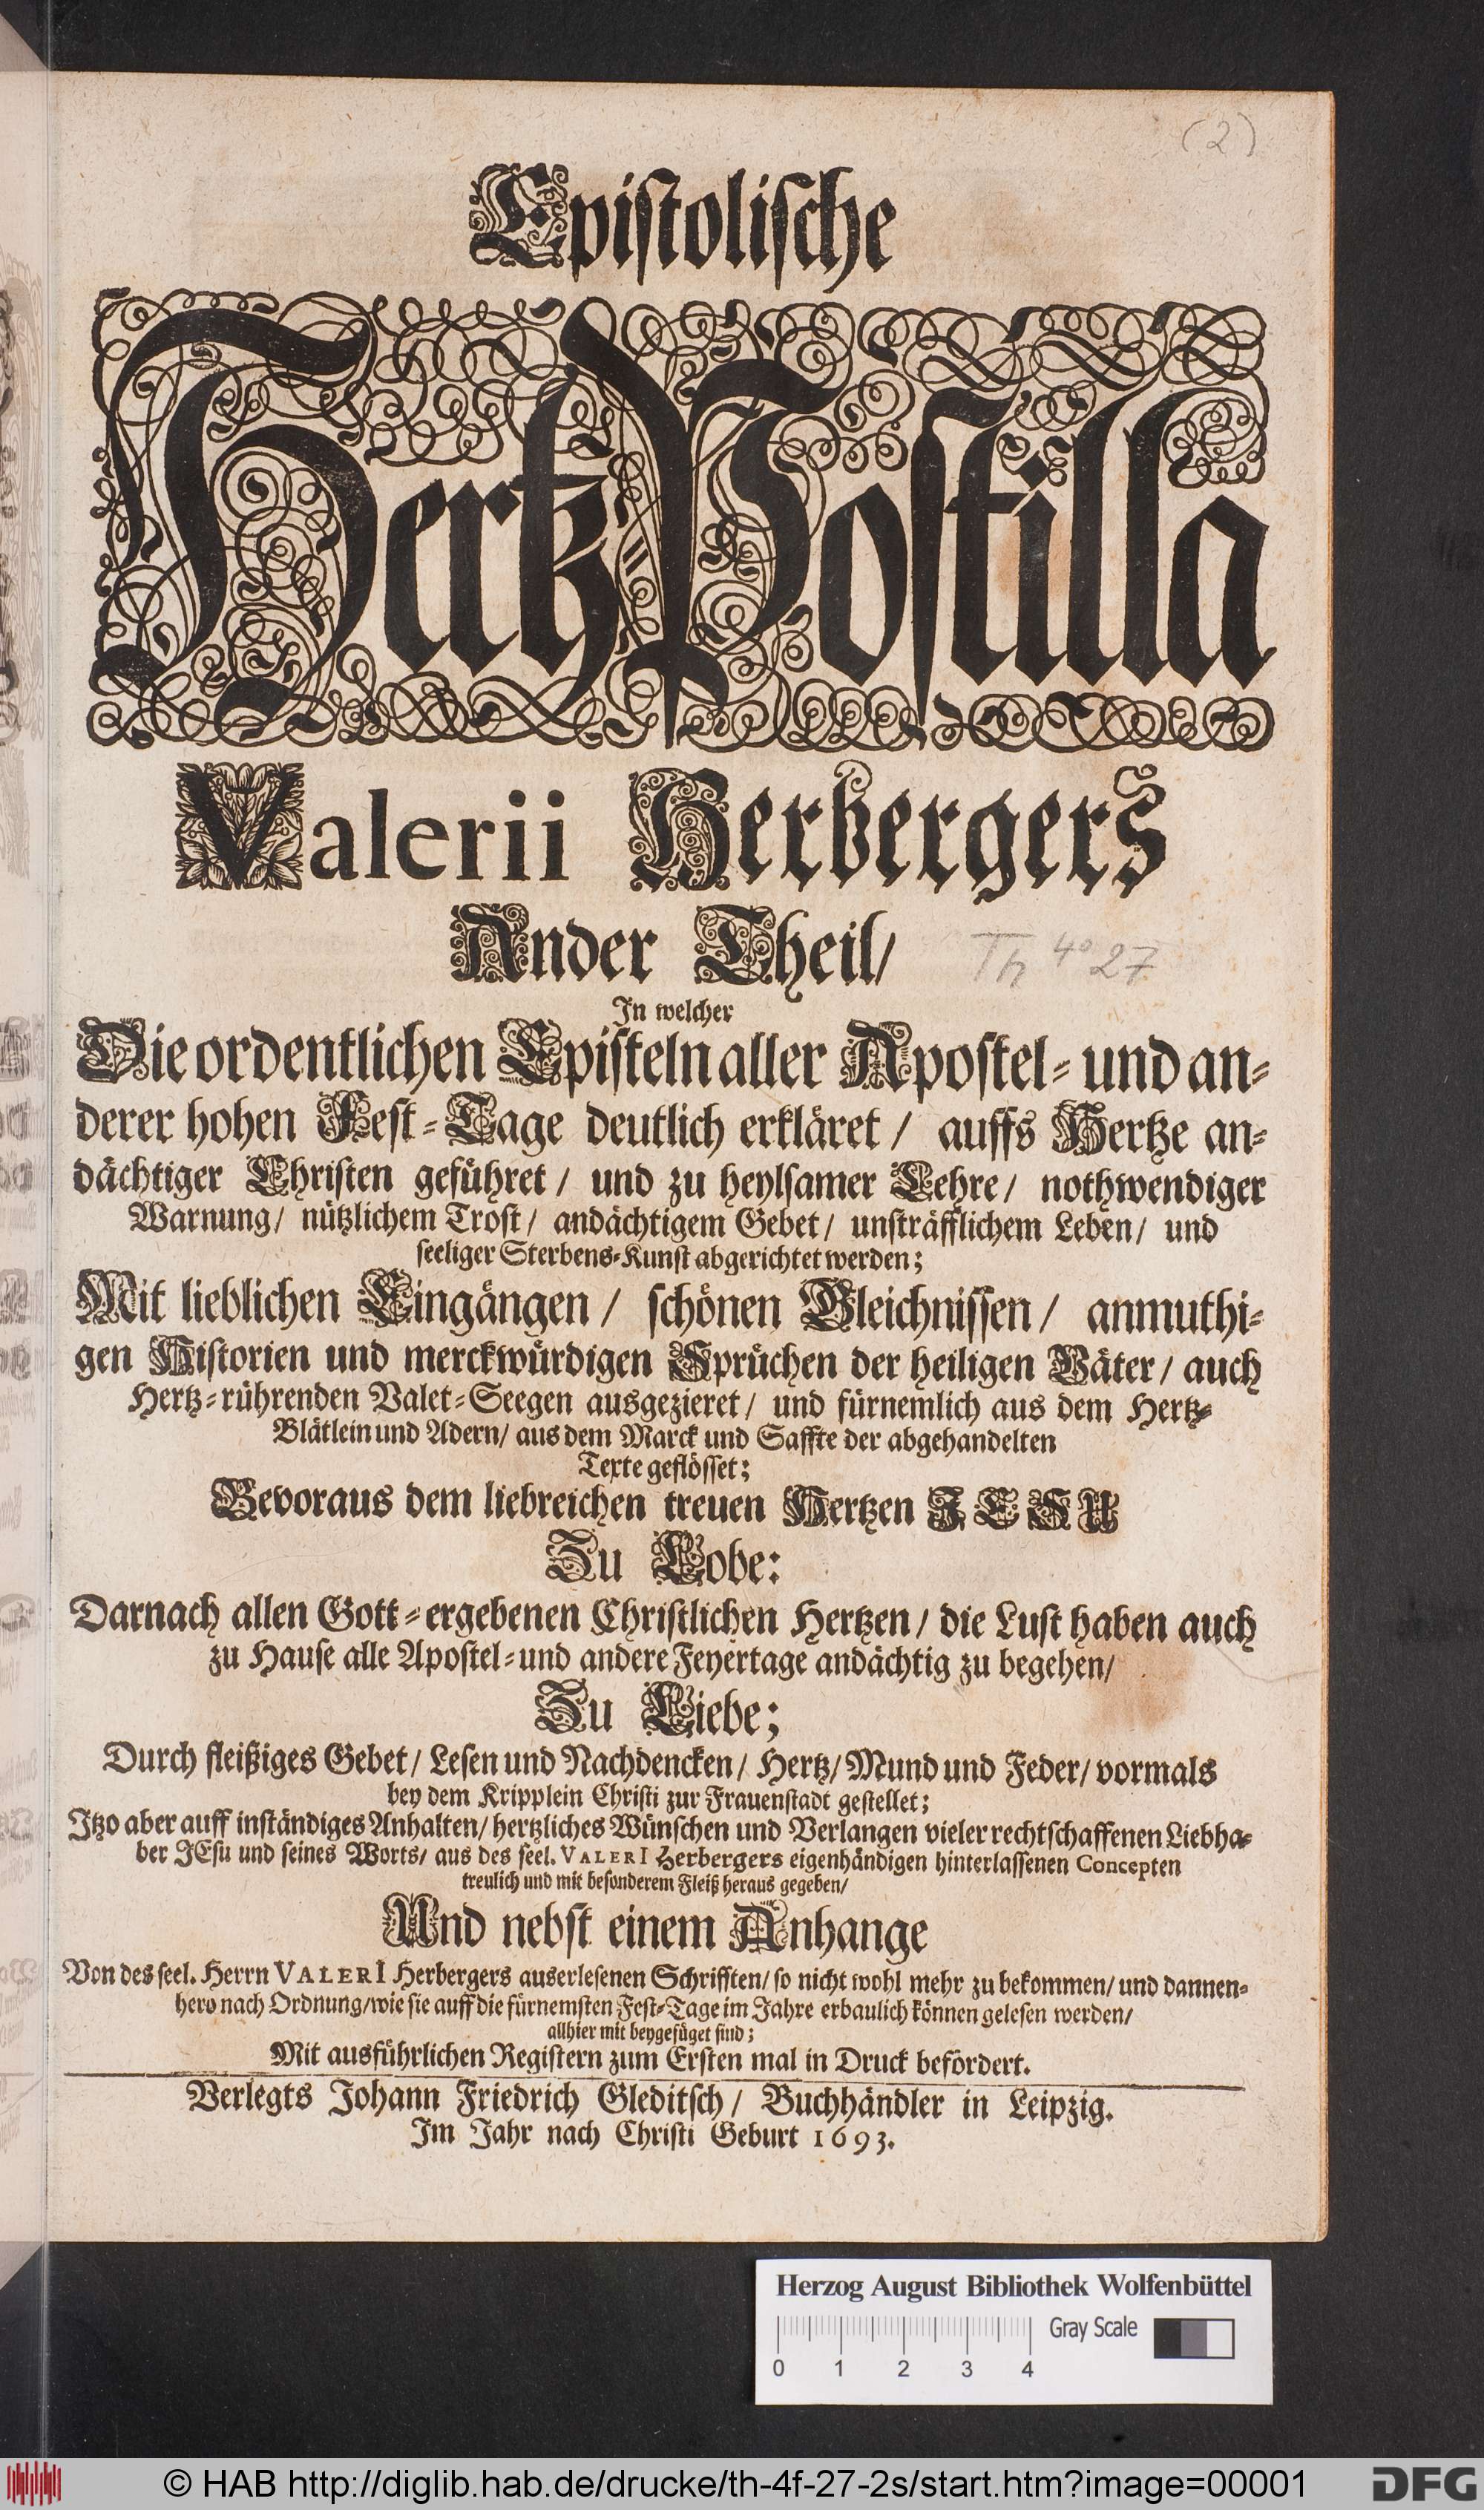 (2)
Epistolische
Hertz Postilla
Valerii Herbergers
Ander Theil/
Th 4° 27
In welcher
Die ordentlichen Episteln aller Apostel- und an-
derer hohen Fest-Tage deutlich erkläret/ auffs Hertze an-
dächtiger Christen geführet/ und zu heylsamer Lehre/ nothwendiger
Warnung/ nützlichem Trost/ andächtigem Gebet/ unsträfflichem Leben/ und
seeliger Sterbens-Kunst abgerichtet werden;
Mit lieblichen Eingängen/ schönen Gleichnissen/ anmuthi-
gen Historien und merckwürdigen Sprüchen der heiligen Väter/ auch
Hertz-rührenden Valet-Seegen ausgezieret/ und fürnemlich aus dem Hertz-
Blätlein und Adern/ aus dem Marck und Saffte der abgehandelten
Texte geflösset;
Bevoraus dem liebreichen treuen Hertzen JESU
Zu Lobe:
Darnach allen Gott-ergebenen Christlichen Hertzen/ die Lust haben auch
zu Hause alle Apostel- und andere Feyertage andächtig zu begehen/
Zu Liebe;
Durch fleißiges Gebet/ Lesen und Nachdencken/ Hertz/ Mund und Feder/ vormals
bey dem Kripplein Christi zur Frauenstadt gestellet;
Itzo aber auff inständiges Anhalten/ hertzliches Wünschen und Verlangen vieler rechtschaffenen Liebha-
ber JEsu und seines Worts/ aus des seel. VALERI Herbergers eigenhändigen hinterlassenen Concepten
treulich und mit besonderem Fleiß heraus gegeben/
Und nebst einem Anhange
Von des seel. Herrn VALERI Herbergers auserlesenen Schrifften/ so nicht wohl mehr zu bekommen/ und dannen-
hero nach Ordnung/ wie sie auff die fürnemsten Fest-Tage im Jahre erbaulich können gelesen werden/
allhier mit beygefüget sind;
Mit ausführlichen Registern zum Ersten mal in Druck befördert.
Verlegts Johann Friedrich Gleditsch/ Buchhändler in Leipzig.
Im Jahr nach Christi Geburt 1693.
Herzog August Bibliothek Wolfenbüttel
Gray Scale
0 1 2 3 4
© HAB http://diglib.hab.de/drucke/th-4f-27-2s/start.htm?image=00001
DFG